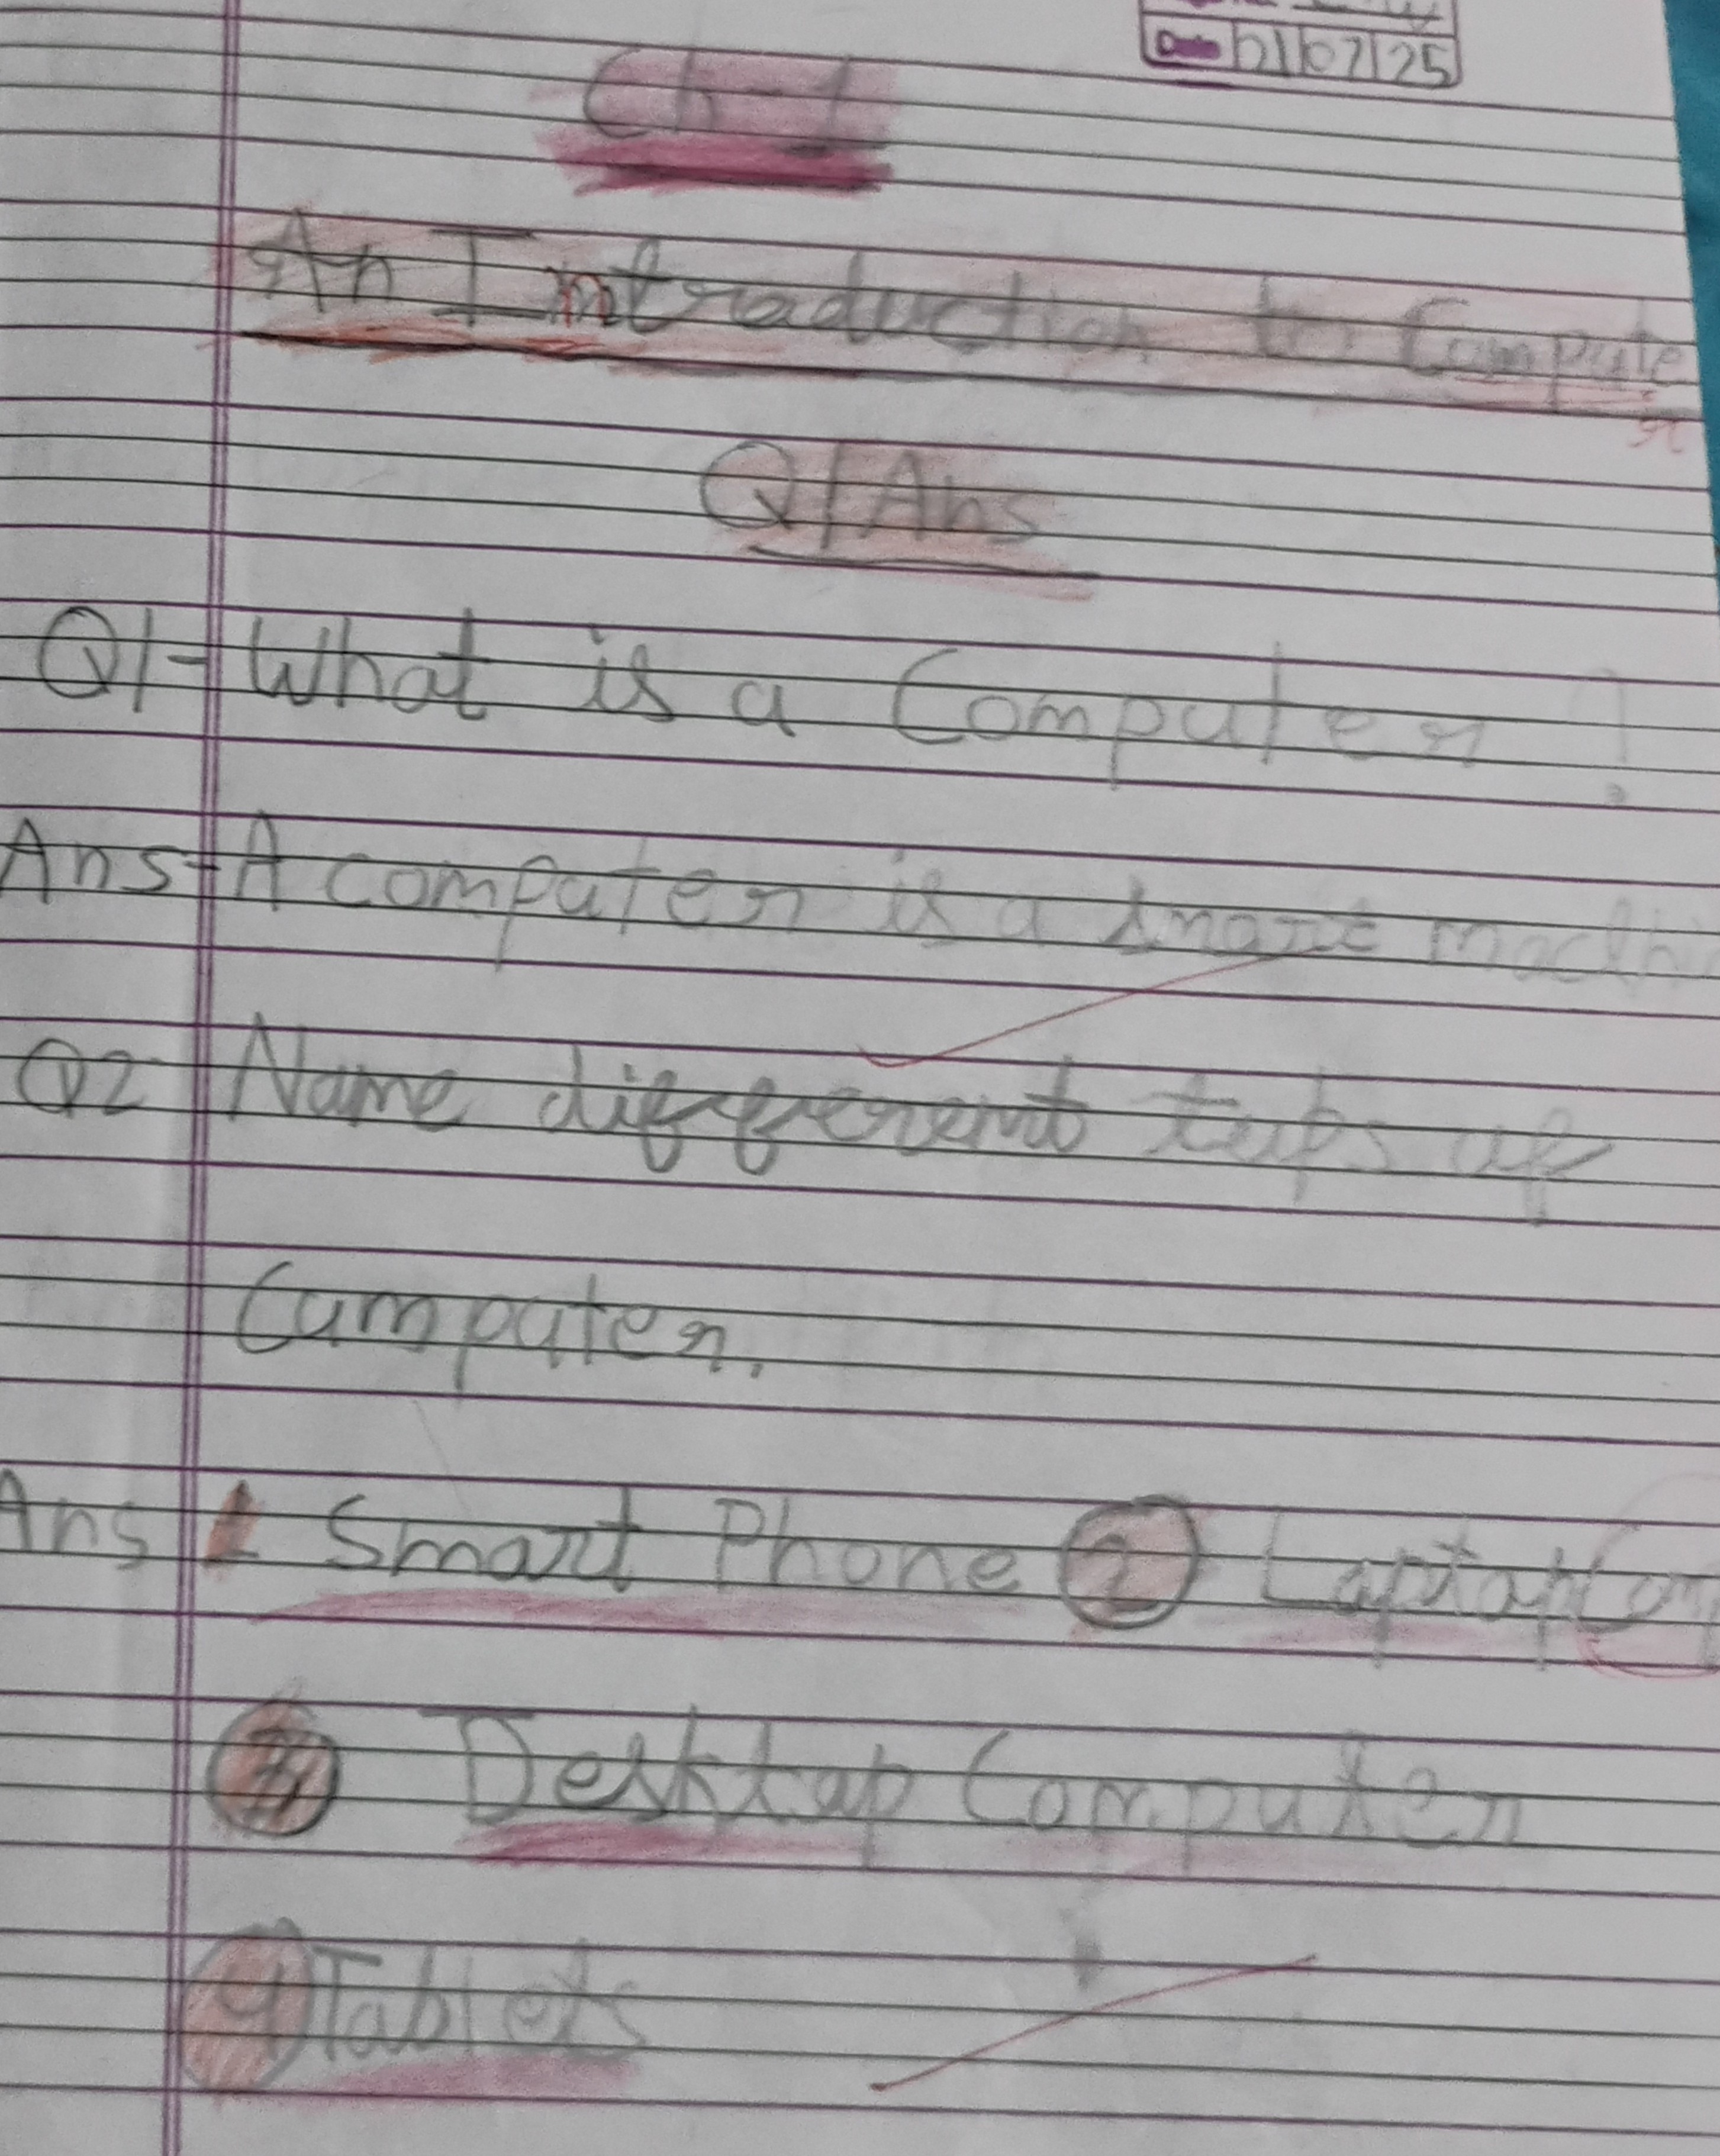 Date 01/07/25
Ch-1
An Introduction to Compute
r
Q/Ans
Q1- What is a Computer ?
Ans- A computer is a smart machin
Q2 Name different typs of
Computer.
Ans 1 Smart Phone 2 Laptop
3 Desktop Computer
4 Tablets